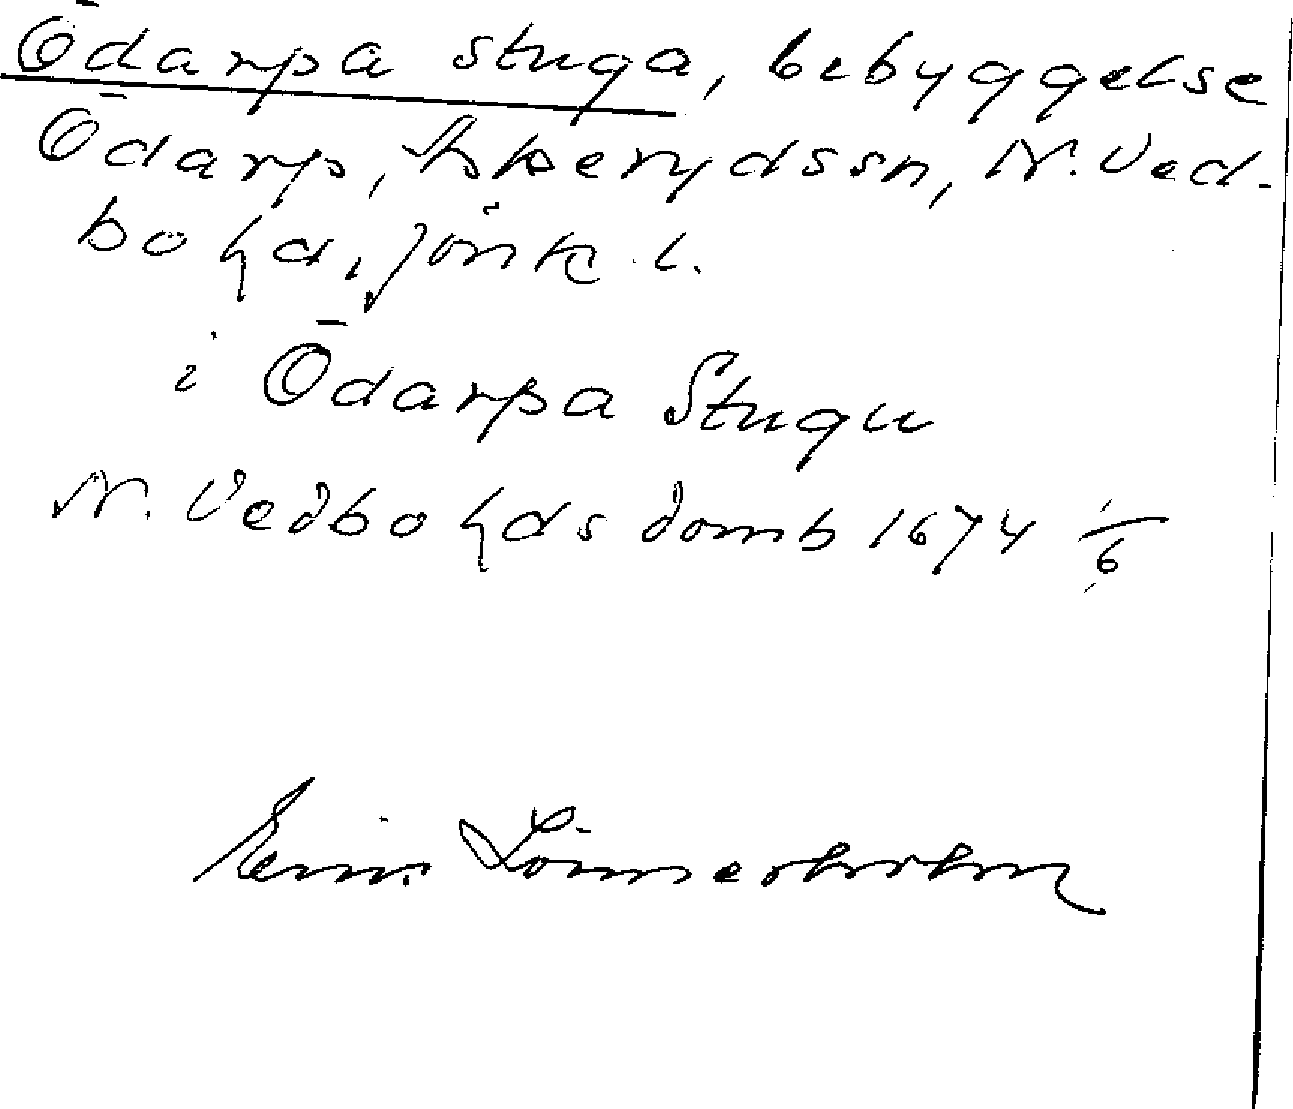 Ödarpa stuga, bebyggelse
Ödarp, Askerydssn, N. Ved-
bo hd, Jönk. l.
i Ödarpa Stugu
N. Vedbo hds domb 1674 1/6
Linnerholm